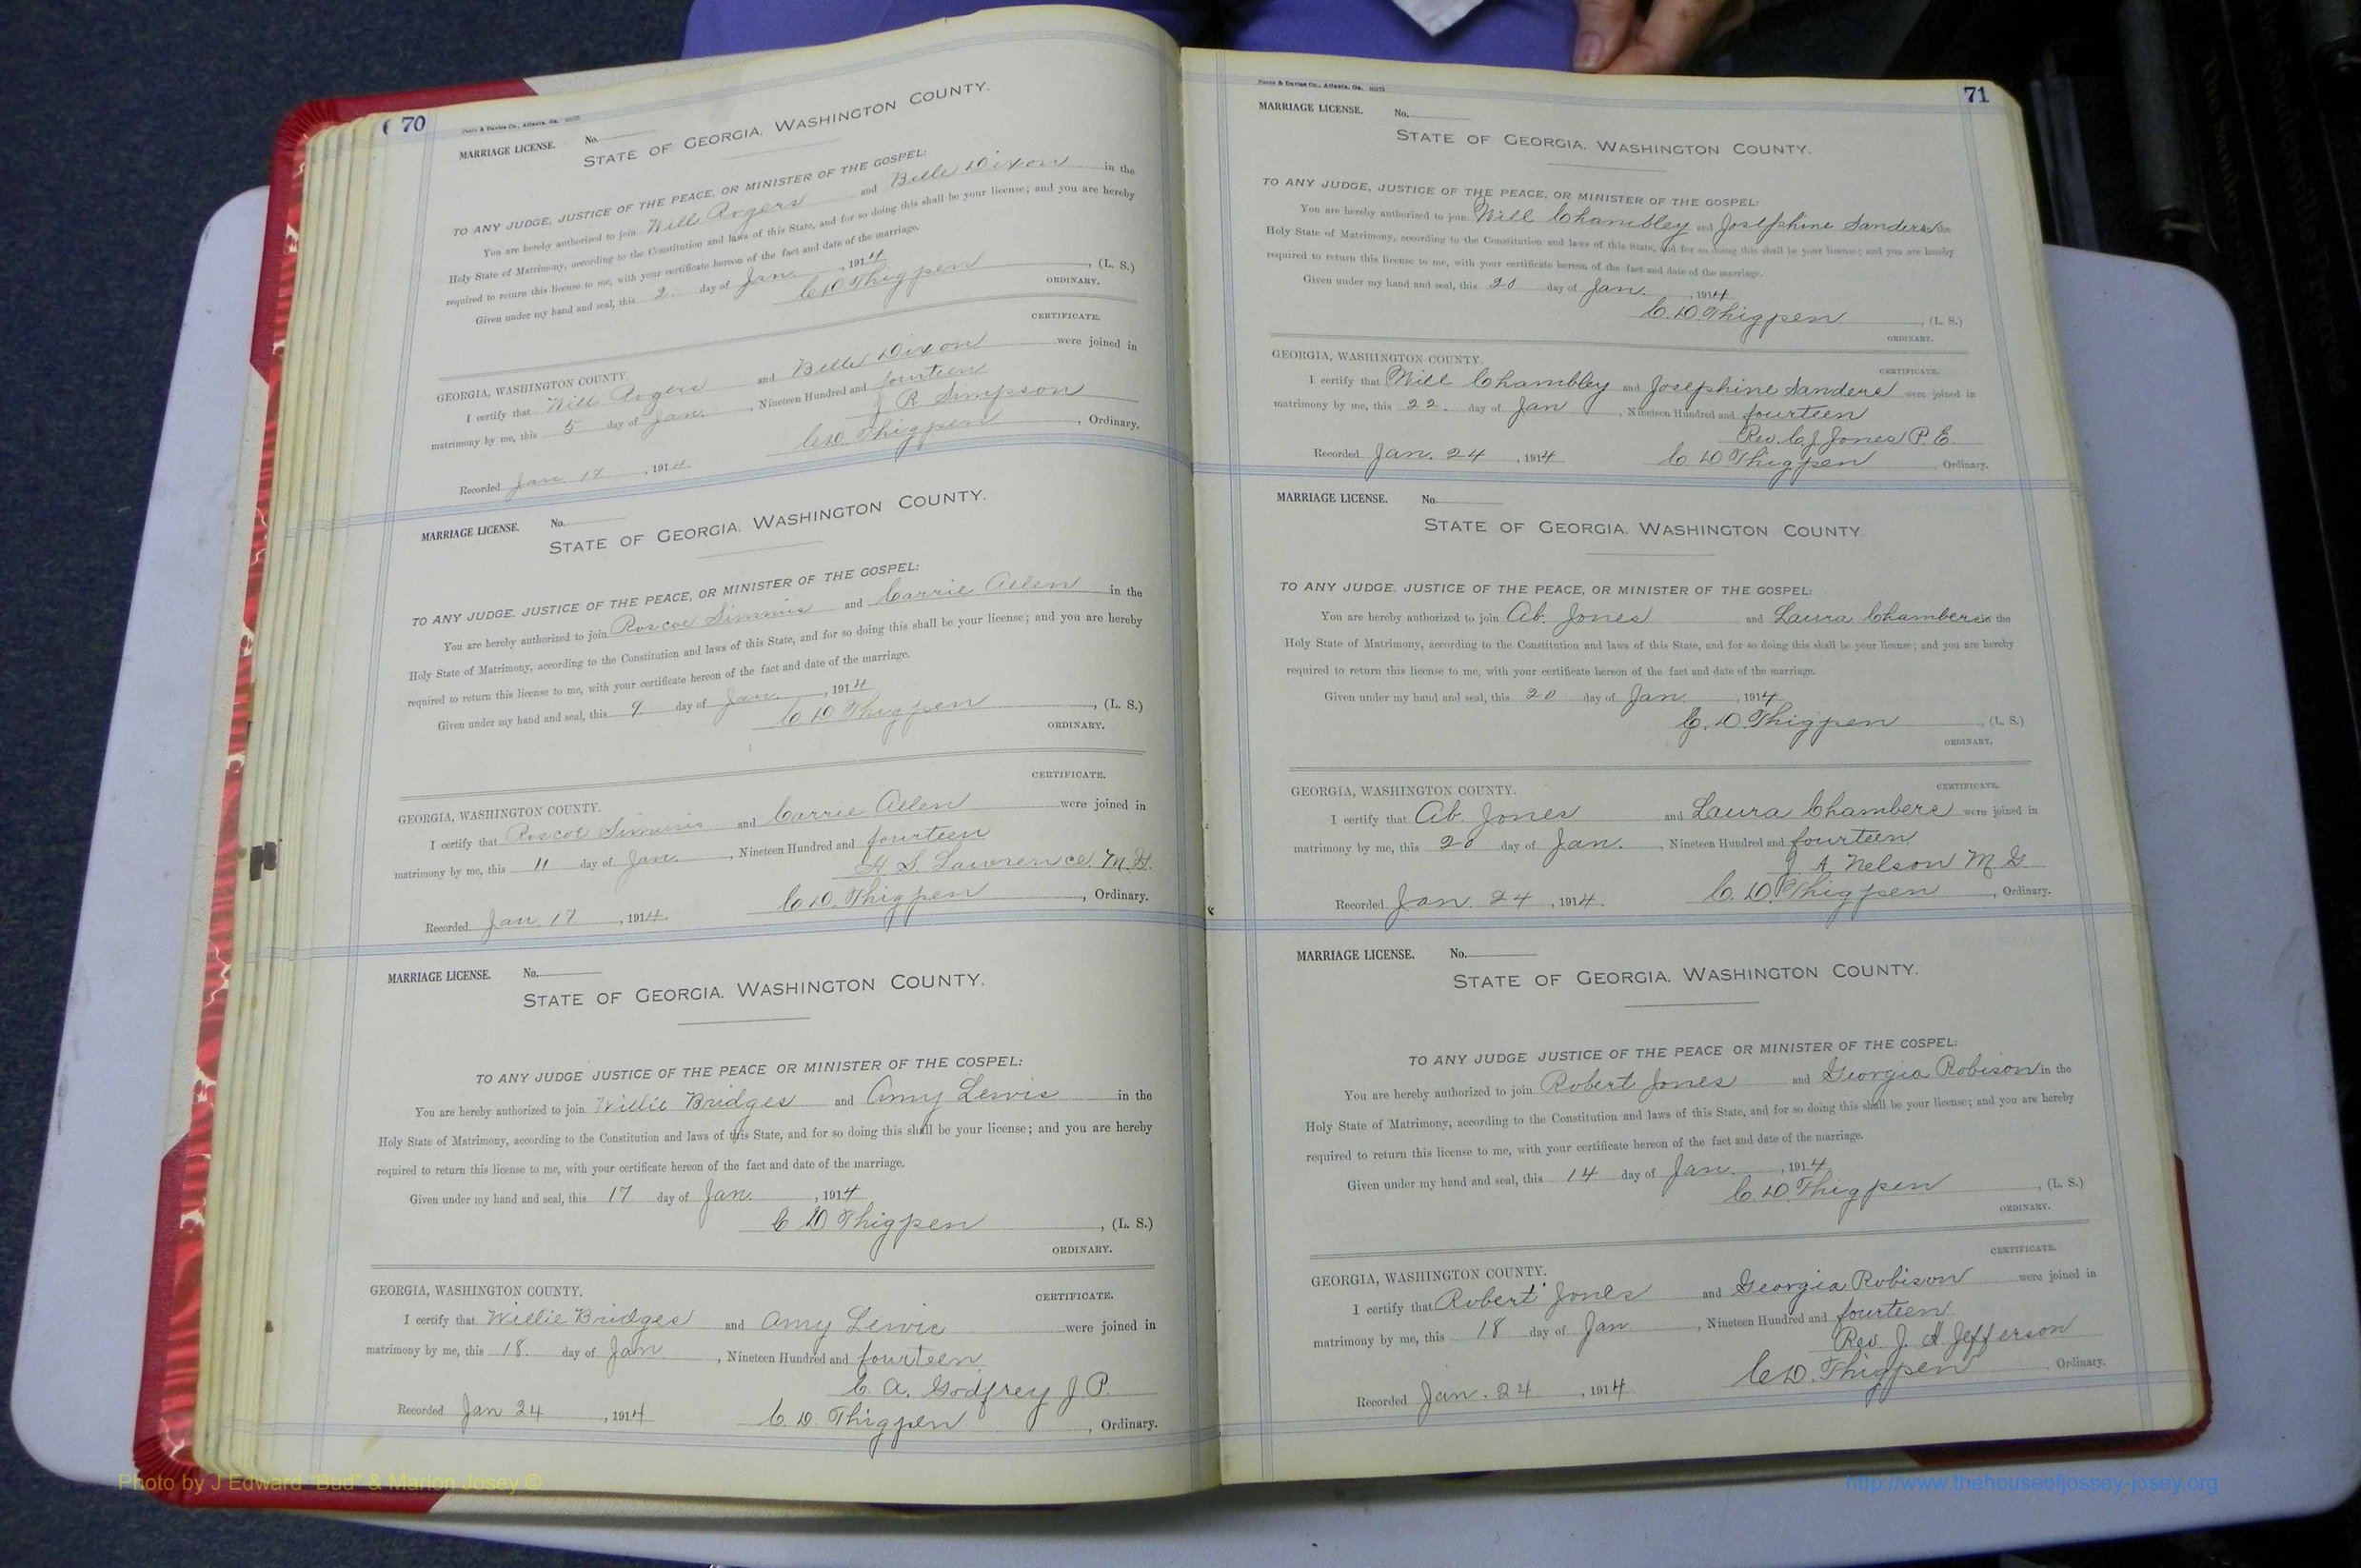 70
Foote & Davies Co., Atlanta, Ga.
MARRIAGE LICENSE. No.
STATE OF GEORGIA. WASHINGTON COUNTY.
TO ANY JUDGE, JUSTICE OF THE PEACE, OR MINISTER OF THE GOSPEL:
You are hereby authorized to join Will Rogers and Belle Dixon in the
Holy State of Matrimony, according to the Constitution and laws of this State, and for so doing this shall be your license; and you are hereby
required to return this license to me, with your certificate hereon of the fact and date of the marriage.
Given under my hand and seal, this 2 day of Jan. , 1914
C. D. Thigpen , (L. S.)
ORDINARY.
CERTIFICATE.
GEORGIA, WASHINGTON COUNTY.
I certify that Will Rogers and Belle Dixon were joined in
matrimony by me, this 5 day of Jan. , Nineteen Hundred and fourteen
J R Simpson
Recorded Jan. 17 , 1914. C. D. Thigpen , Ordinary.
MARRIAGE LICENSE. No.
STATE OF GEORGIA. WASHINGTON COUNTY.
TO ANY JUDGE, JUSTICE OF THE PEACE, OR MINISTER OF THE GOSPEL:
You are hereby authorized to join Roscoe Simmis and Carrie Allen in the
Holy State of Matrimony, according to the Constitution and laws of this State, and for so doing this shall be your license; and you are hereby
required to return this license to me, with your certificate hereon of the fact and date of the marriage.
Given under my hand and seal, this 9 day of Jan. , 1914
C D Thigpen , (L. S.)
ORDINARY.
CERTIFICATE.
GEORGIA, WASHINGTON COUNTY.
I certify that Roscoe Simmis and Carrie Allen were joined in
matrimony by me, this 11 day of Jan. , Nineteen Hundred and fourteen
H S. Lawrence M.G.
Recorded Jan. 17 , 1914. C D. Thigpen , Ordinary.
MARRIAGE LICENSE. No.
STATE OF GEORGIA. WASHINGTON COUNTY.
TO ANY JUDGE JUSTICE OF THE PEACE OR MINISTER OF THE GOSPEL:
You are hereby authorized to join Willie Bridges and Amy Lewis in the
Holy State of Matrimony, according to the Constitution and laws of this State, and for so doing this shall be your license; and you are hereby
required to return this license to me, with your certificate hereon of the fact and date of the marriage.
Given under my hand and seal, this 17 day of Jan. , 1914
C D Thigpen , (L. S.)
ORDINARY.
CERTIFICATE.
GEORGIA, WASHINGTON COUNTY.
I certify that Willie Bridges and Amy Lewis were joined in
matrimony by me, this 18. day of Jan , Nineteen Hundred and fourteen
C. A. Godfrey J. P.
Recorded Jan 24 , 1914 C. D. Thigpen , Ordinary.
71
Foote & Davies Co., Atlanta, Ga.
MARRIAGE LICENSE. No.
STATE OF GEORGIA. WASHINGTON COUNTY.
TO ANY JUDGE, JUSTICE OF THE PEACE, OR MINISTER OF THE GOSPEL:
You are hereby authorized to join Will Chambley and Josephine Sanders in the
Holy State of Matrimony, according to the Constitution and laws of this State, and for so doing this shall be your license; and you are hereby
required to return this license to me, with your certificate hereon of the fact and date of the marriage.
Given under my hand and seal, this 20 day of Jan. , 1914
C. D Thigpen , (L. S.)
ORDINARY.
GEORGIA, WASHINGTON COUNTY.
CERTIFICATE.
I certify that Will Chambley and Josephine Sanders were joined in
matrimony by me, this 22. day of Jan , Nineteen Hundred and fourteen
Rev. C. J. Jones P. E.
Recorded Jan. 24 , 1914 C D Thigpen , Ordinary.
MARRIAGE LICENSE. No.
STATE OF GEORGIA. WASHINGTON COUNTY.
TO ANY JUDGE, JUSTICE OF THE PEACE, OR MINISTER OF THE GOSPEL:
You are hereby authorized to join Ab. Jones and Laura Chambers in the
Holy State of Matrimony, according to the Constitution and laws of this State, and for so doing this shall be your license; and you are hereby
required to return this license to me, with your certificate hereon of the fact and date of the marriage.
Given under my hand and seal, this 20 day of Jan. , 1914
C. D. Thigpen , (L. S.)
ORDINARY.
CERTIFICATE.
GEORGIA, WASHINGTON COUNTY.
I certify that Ab. Jones and Laura Chambers were joined in
matrimony by me, this 20 day of Jan. , Nineteen Hundred and fourteen
J. A. Nelson M G
Recorded Jan. 24 , 1914. C. D. Thigpen , Ordinary.
MARRIAGE LICENSE. No.
STATE OF GEORGIA. WASHINGTON COUNTY.
TO ANY JUDGE JUSTICE OF THE PEACE OR MINISTER OF THE GOSPEL:
You are hereby authorized to join Robert Jones and Georgia Robison in the
Holy State of Matrimony, according to the Constitution and laws of this State, and for so doing this shall be your license; and you are hereby
required to return this license to me, with your certificate hereon of the fact and date of the marriage.
Given under my hand and seal, this 14 day of Jan. , 1914
C. D. Thigpen , (L. S.)
ORDINARY.
CERTIFICATE.
GEORGIA, WASHINGTON COUNTY.
I certify that Robert Jones and Georgia Robison were joined in
matrimony by me, this 18 day of Jan , Nineteen Hundred and fourteen
Rev. J. A. Jefferson
Recorded Jan. 24 , 1914 C D. Thigpen , Ordinary.
Photo by J Edward "Bud" & Marion Josey ©
http://www.thehouseofjossey-josey.org